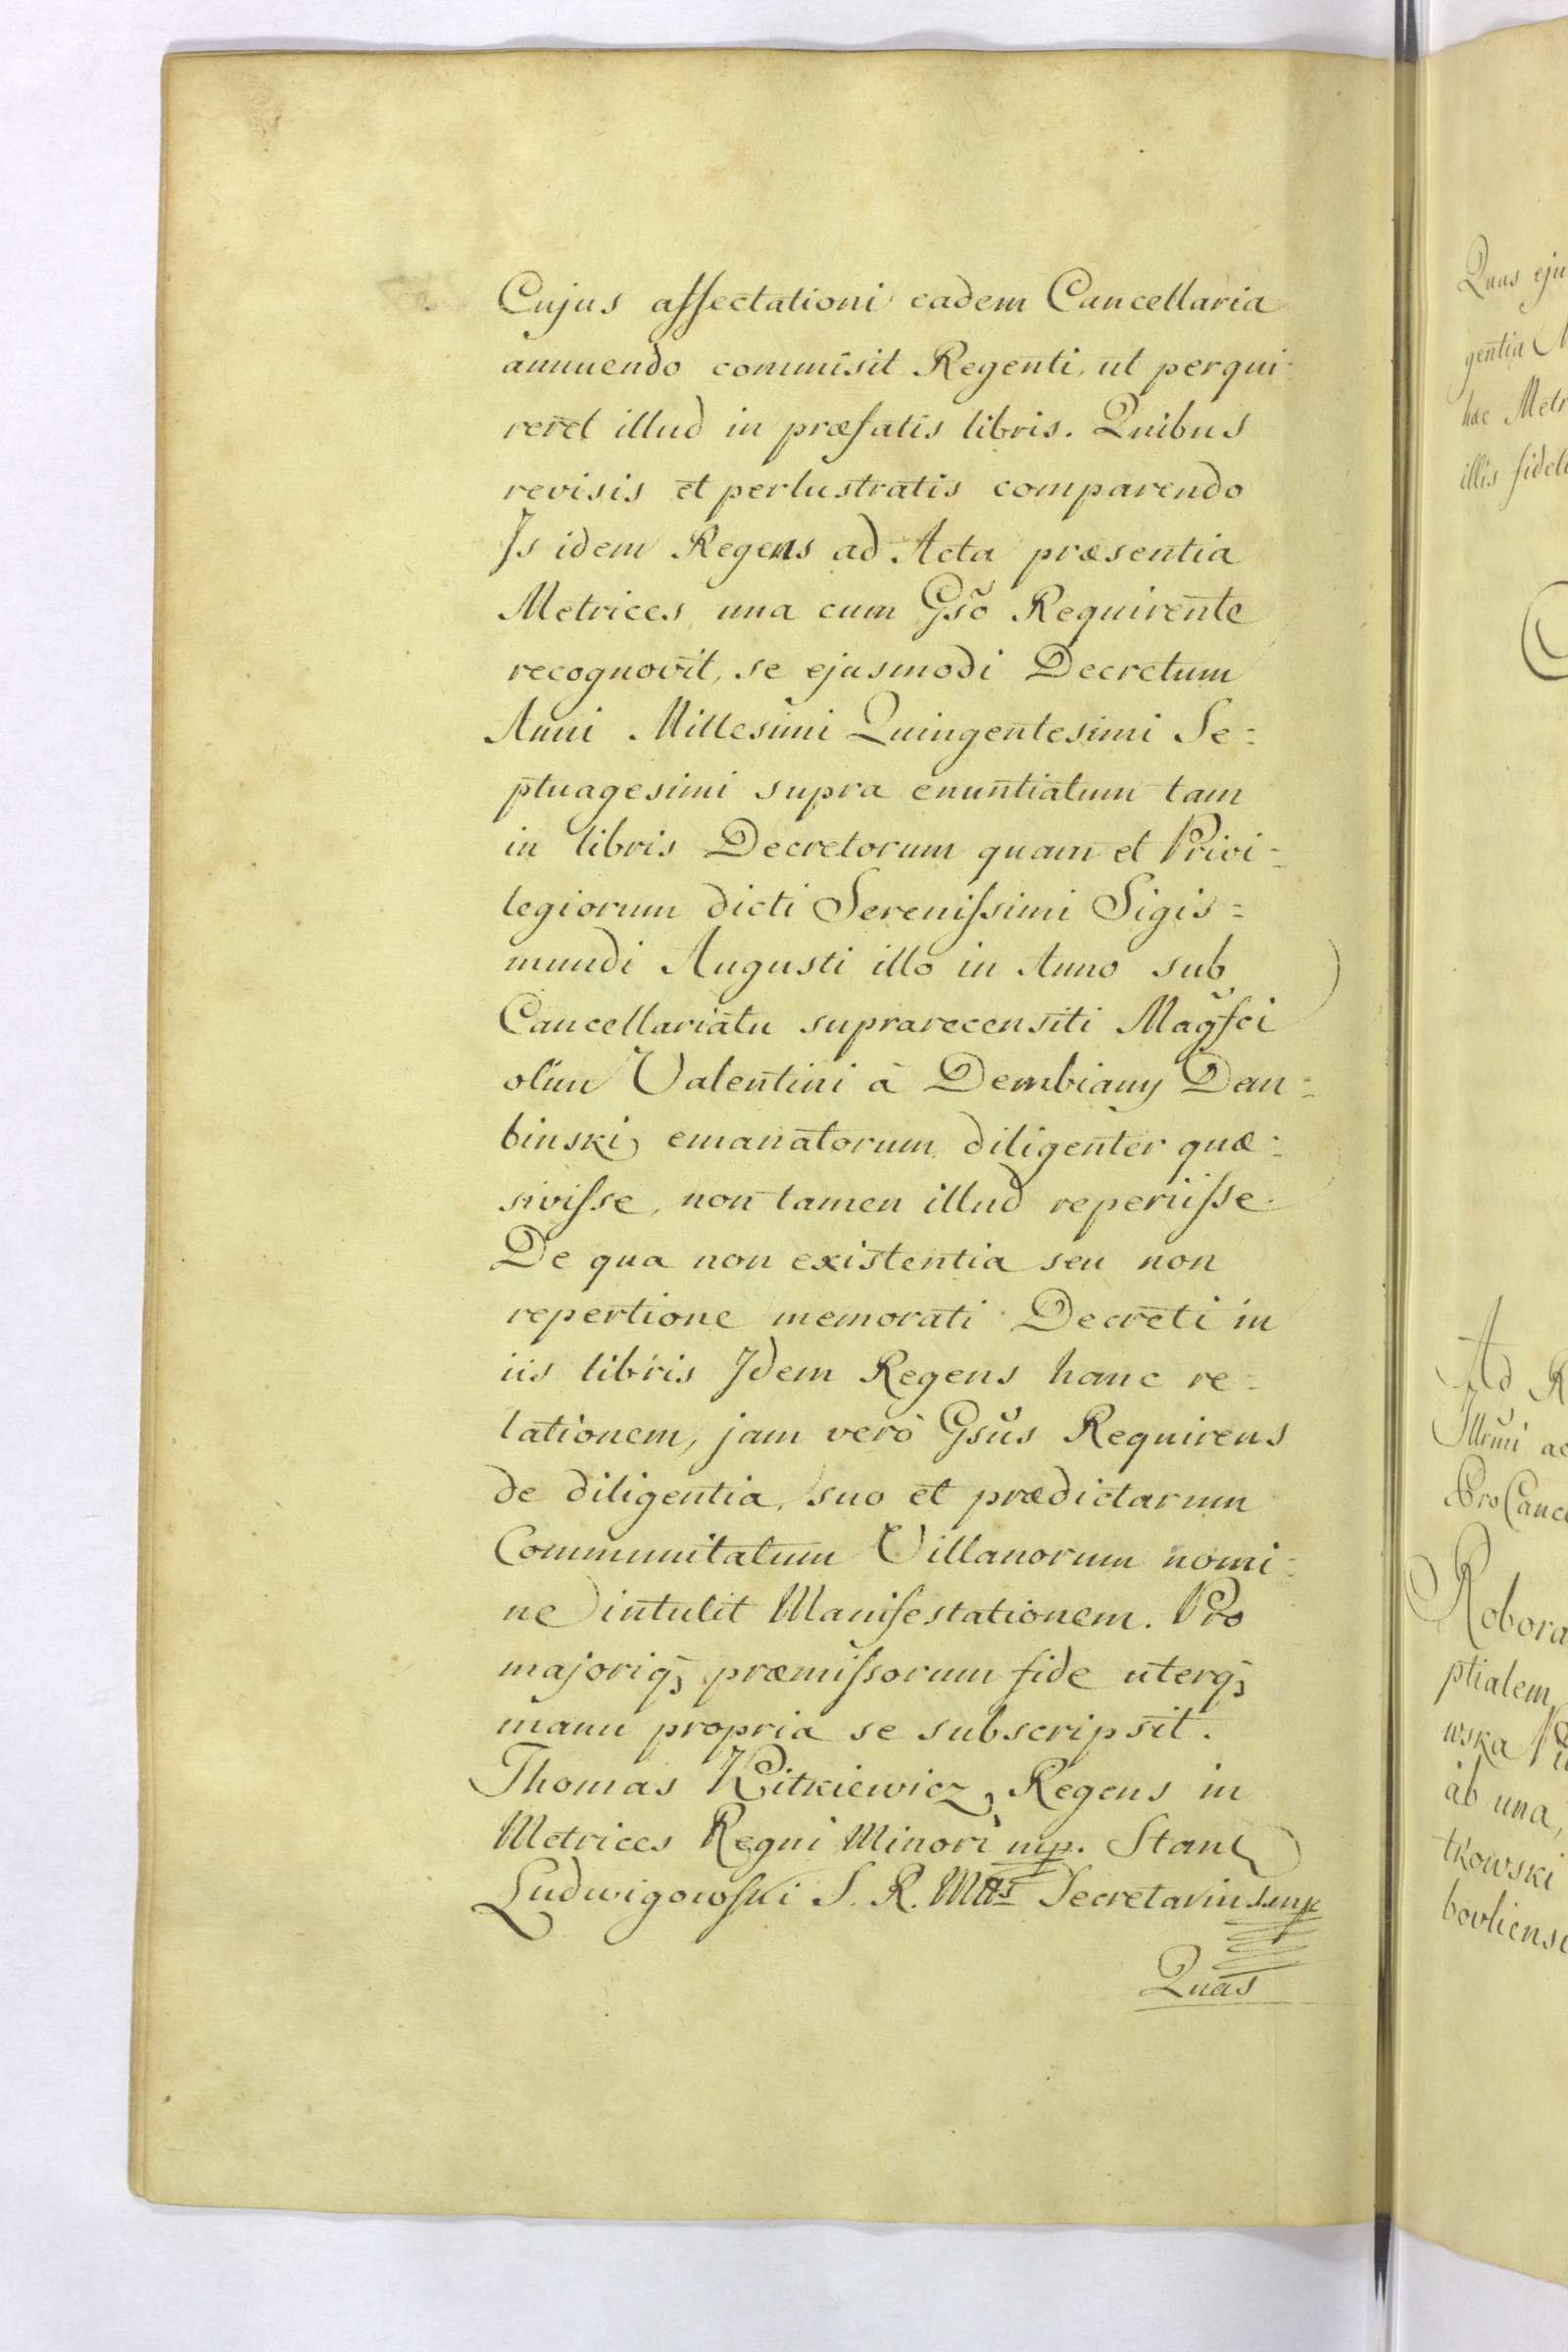 Cujus affectationi eadem Cancellaria
annuendo commisit Regenti, ut perqui-
reret illud in præfatis libris. Quibus
revisis et perlustratis comparendo
Is idem Regens ad Acta præsentia
Metrices una cum Gsõ Requirente
recognovit, se ejusmodi Decretum
Anni Millesimi Quingentesimi Se=
ptuagesimi supra enuntiatum tam
in libris Decretorum quam et Privi=
legiorum dicti Serenissimi Sigis=
mundi Augusti illo in Anno sub
Cancellariatu suprarecensiti Magfci
olim Valentini à Dembiany Dem=
binski, emanatorum diligenter quæ=
sivisse, non tamen illud reperiisse.
De qua non existentia seu non
repertione memorati Decreti in
iis libris Idem Regens hanc re=
lationem, jam verò Gsũs Requirens
de diligentia, suo et prædictarum
Communitatum Villanorum nomi=
ne intulit Manifestationem. Pro
majoriq; præmissorum fide uterq;
manu propria se subscripsit.
Thomas Witkiewicz, Regens in
Metrices Regni Minori mp. Stan
Ludwigowski S. R. Mtis Secretarius mp
Quas
Quas eju
gentia M
hac Metr
illis fidel
Ad R
Illrmi ac
ProCance
Robora
ptialem
wska
ab una,
tkowski